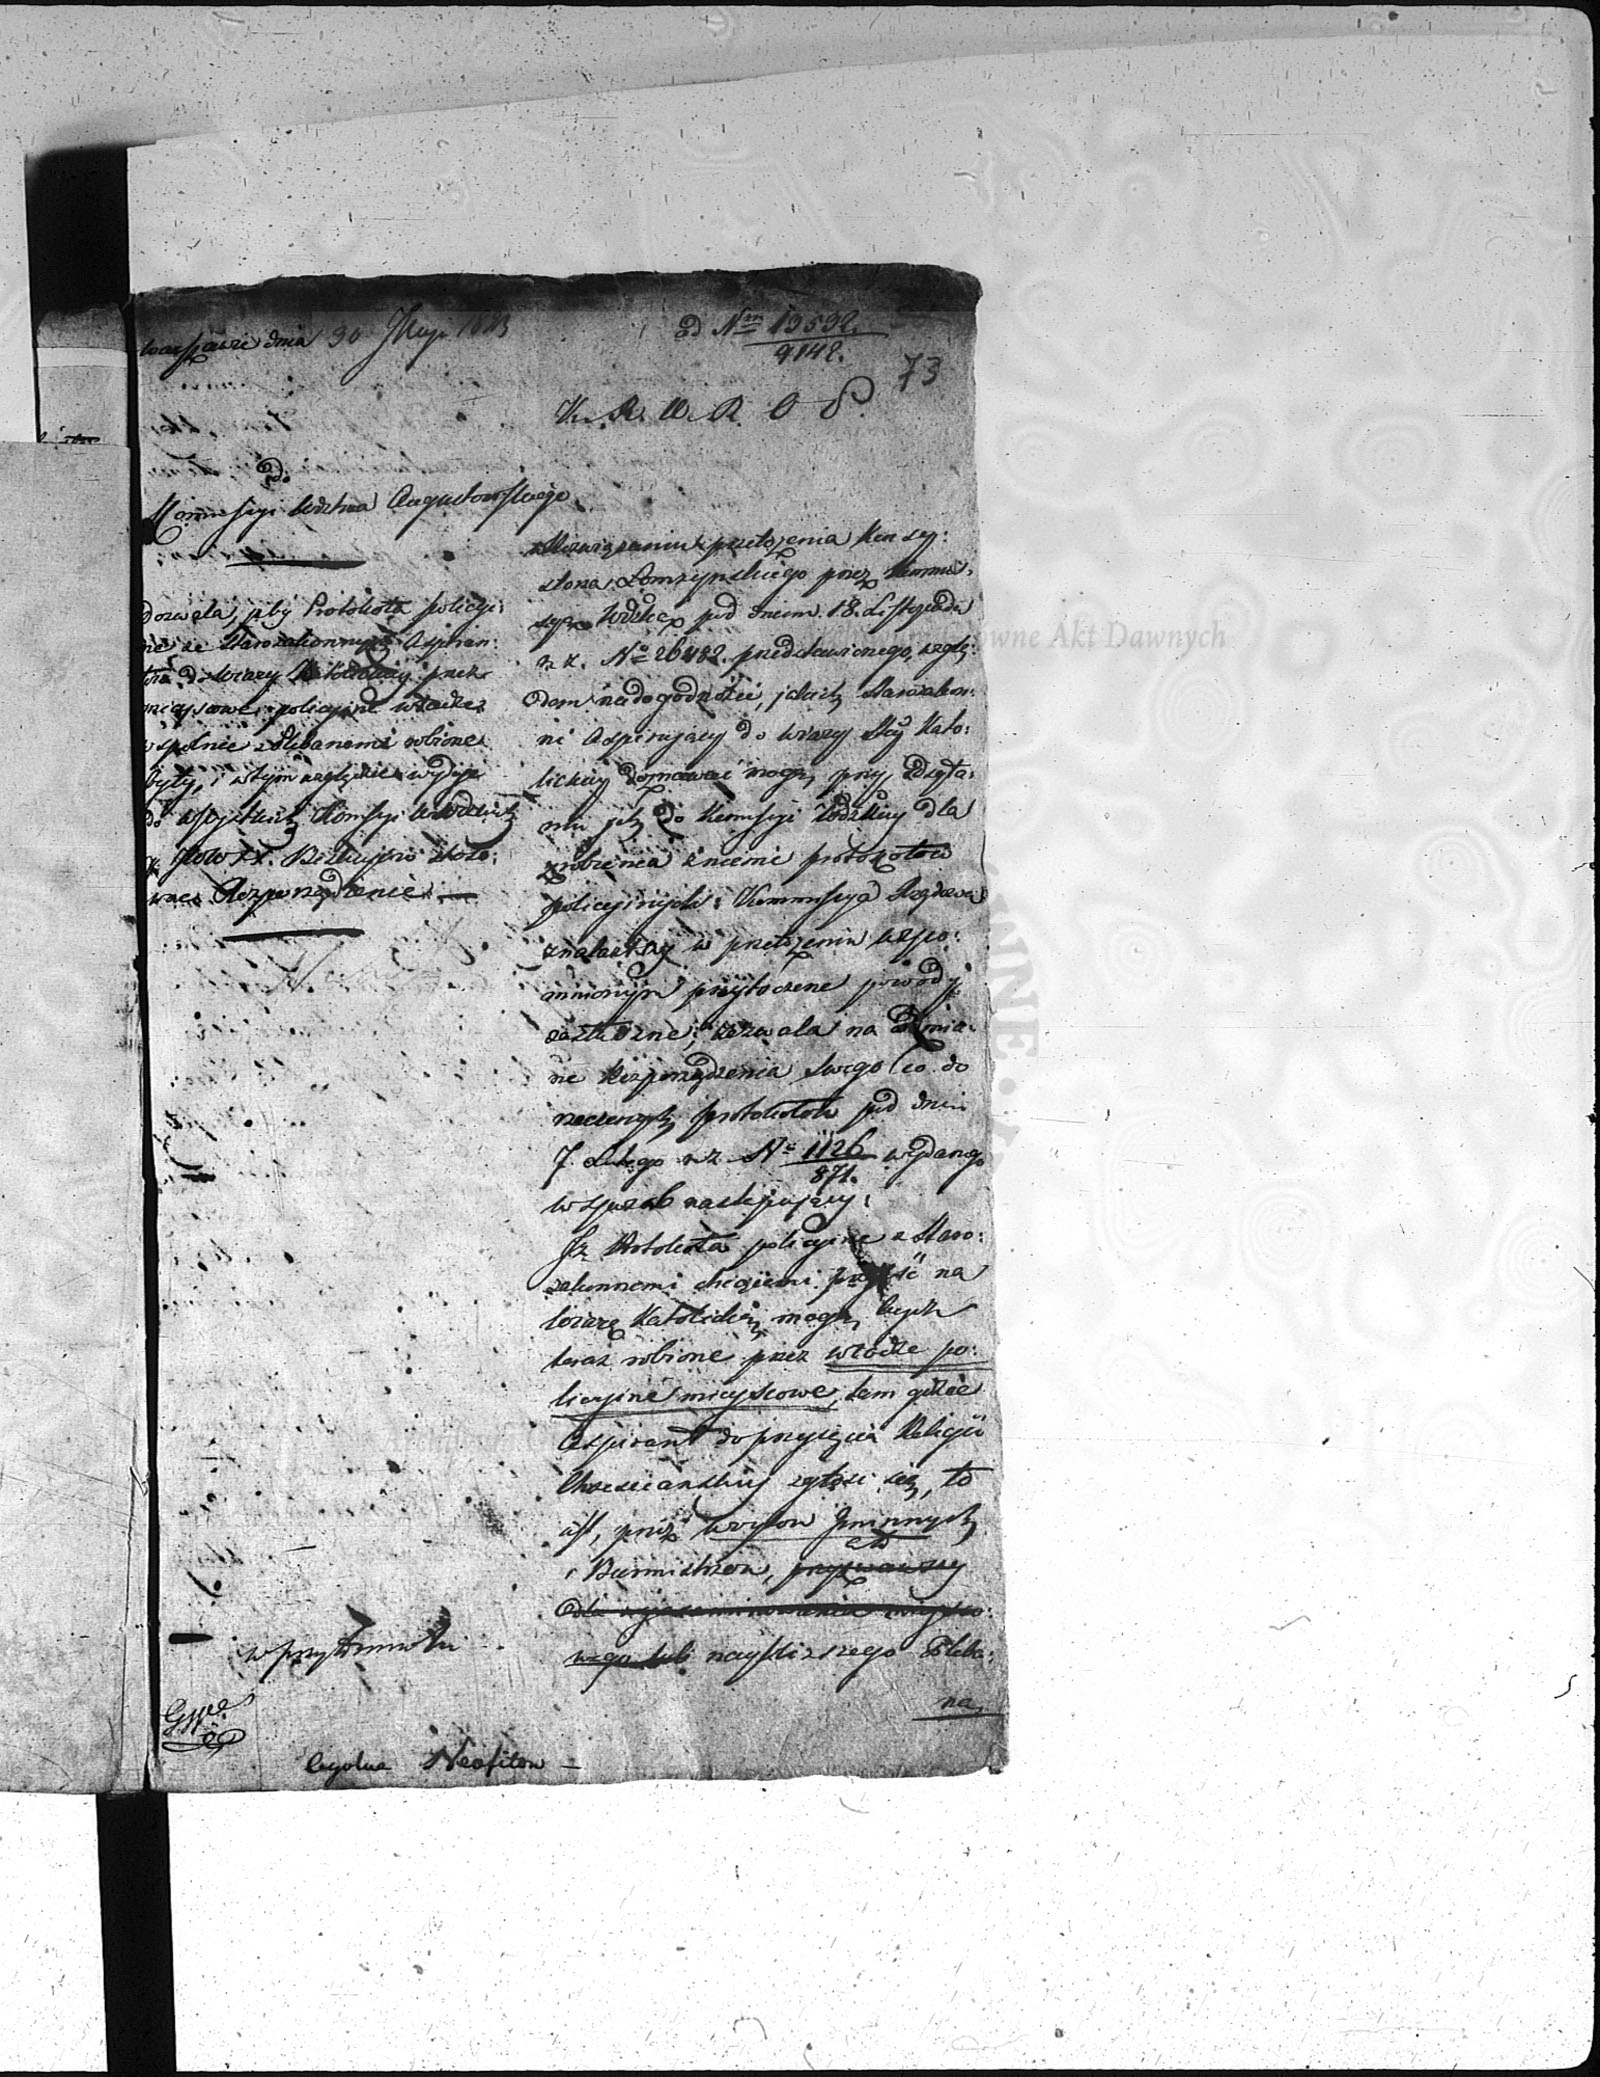 Warszawie dnia 30 Maja 1823
ad Nrm 13532.
9142.
73
K. R. W. R. O P.
Do
Kommissyi Wdztwa Augustowskiego
dozwala, aby Protokoła policyj:
ne ze Starozakonnych Aspiran:
tów do wiary Katolickiey przez
mieyscowe policyine władze
wspolnie z Plebanami robione
były, i w tym względzie wydaje
do wszystkich Komissyi Wdzkich
Rozporządzenie. —
w przytomności
Czyslue Neofitow —
W rozwiązaniu przełożenia Konsys:
storza Łomżyńskiego przez Kommis:
syą Wdzką pod dniem 18. Listopada
r. z. No 26482. przedstawionego, wzglę:
dem niedogodności, jakich starozakon:
ni Aspirujący do wiary Stey Kato:
lickiey doznawać mogą, przy
ich do Komissyi Wdzkiey dla
zrobienia z niemi protokołów
policyinych: Kommissya Rządowa
znalazłszy w przełożeniu wspo:
mnionym przytoczone powody
za słuszne; zezwala na zmia:
nę Rozporządzenia swego co do
rzeczonych protokołow pod dniem
7 Lutego r. z. No 1126 wydanego
871.
w sposób następujący:
Iż Protokoła policyine z Staro:
zakonnemi chcącemi przeyść na
wiarę Katolicką mogą bydź
teraz robione przez władze po:
licyine mieyscowe, tam gdzie
Aspirant do przyięcia Religii
Chrześciańskiej zgłosi się, to
jest, przez Wóytow Gminnych
i Burmistrzow, przyzwawszy
dla wyexaminowania mieysco:
wego lub nayblizszego Pleba:
na,